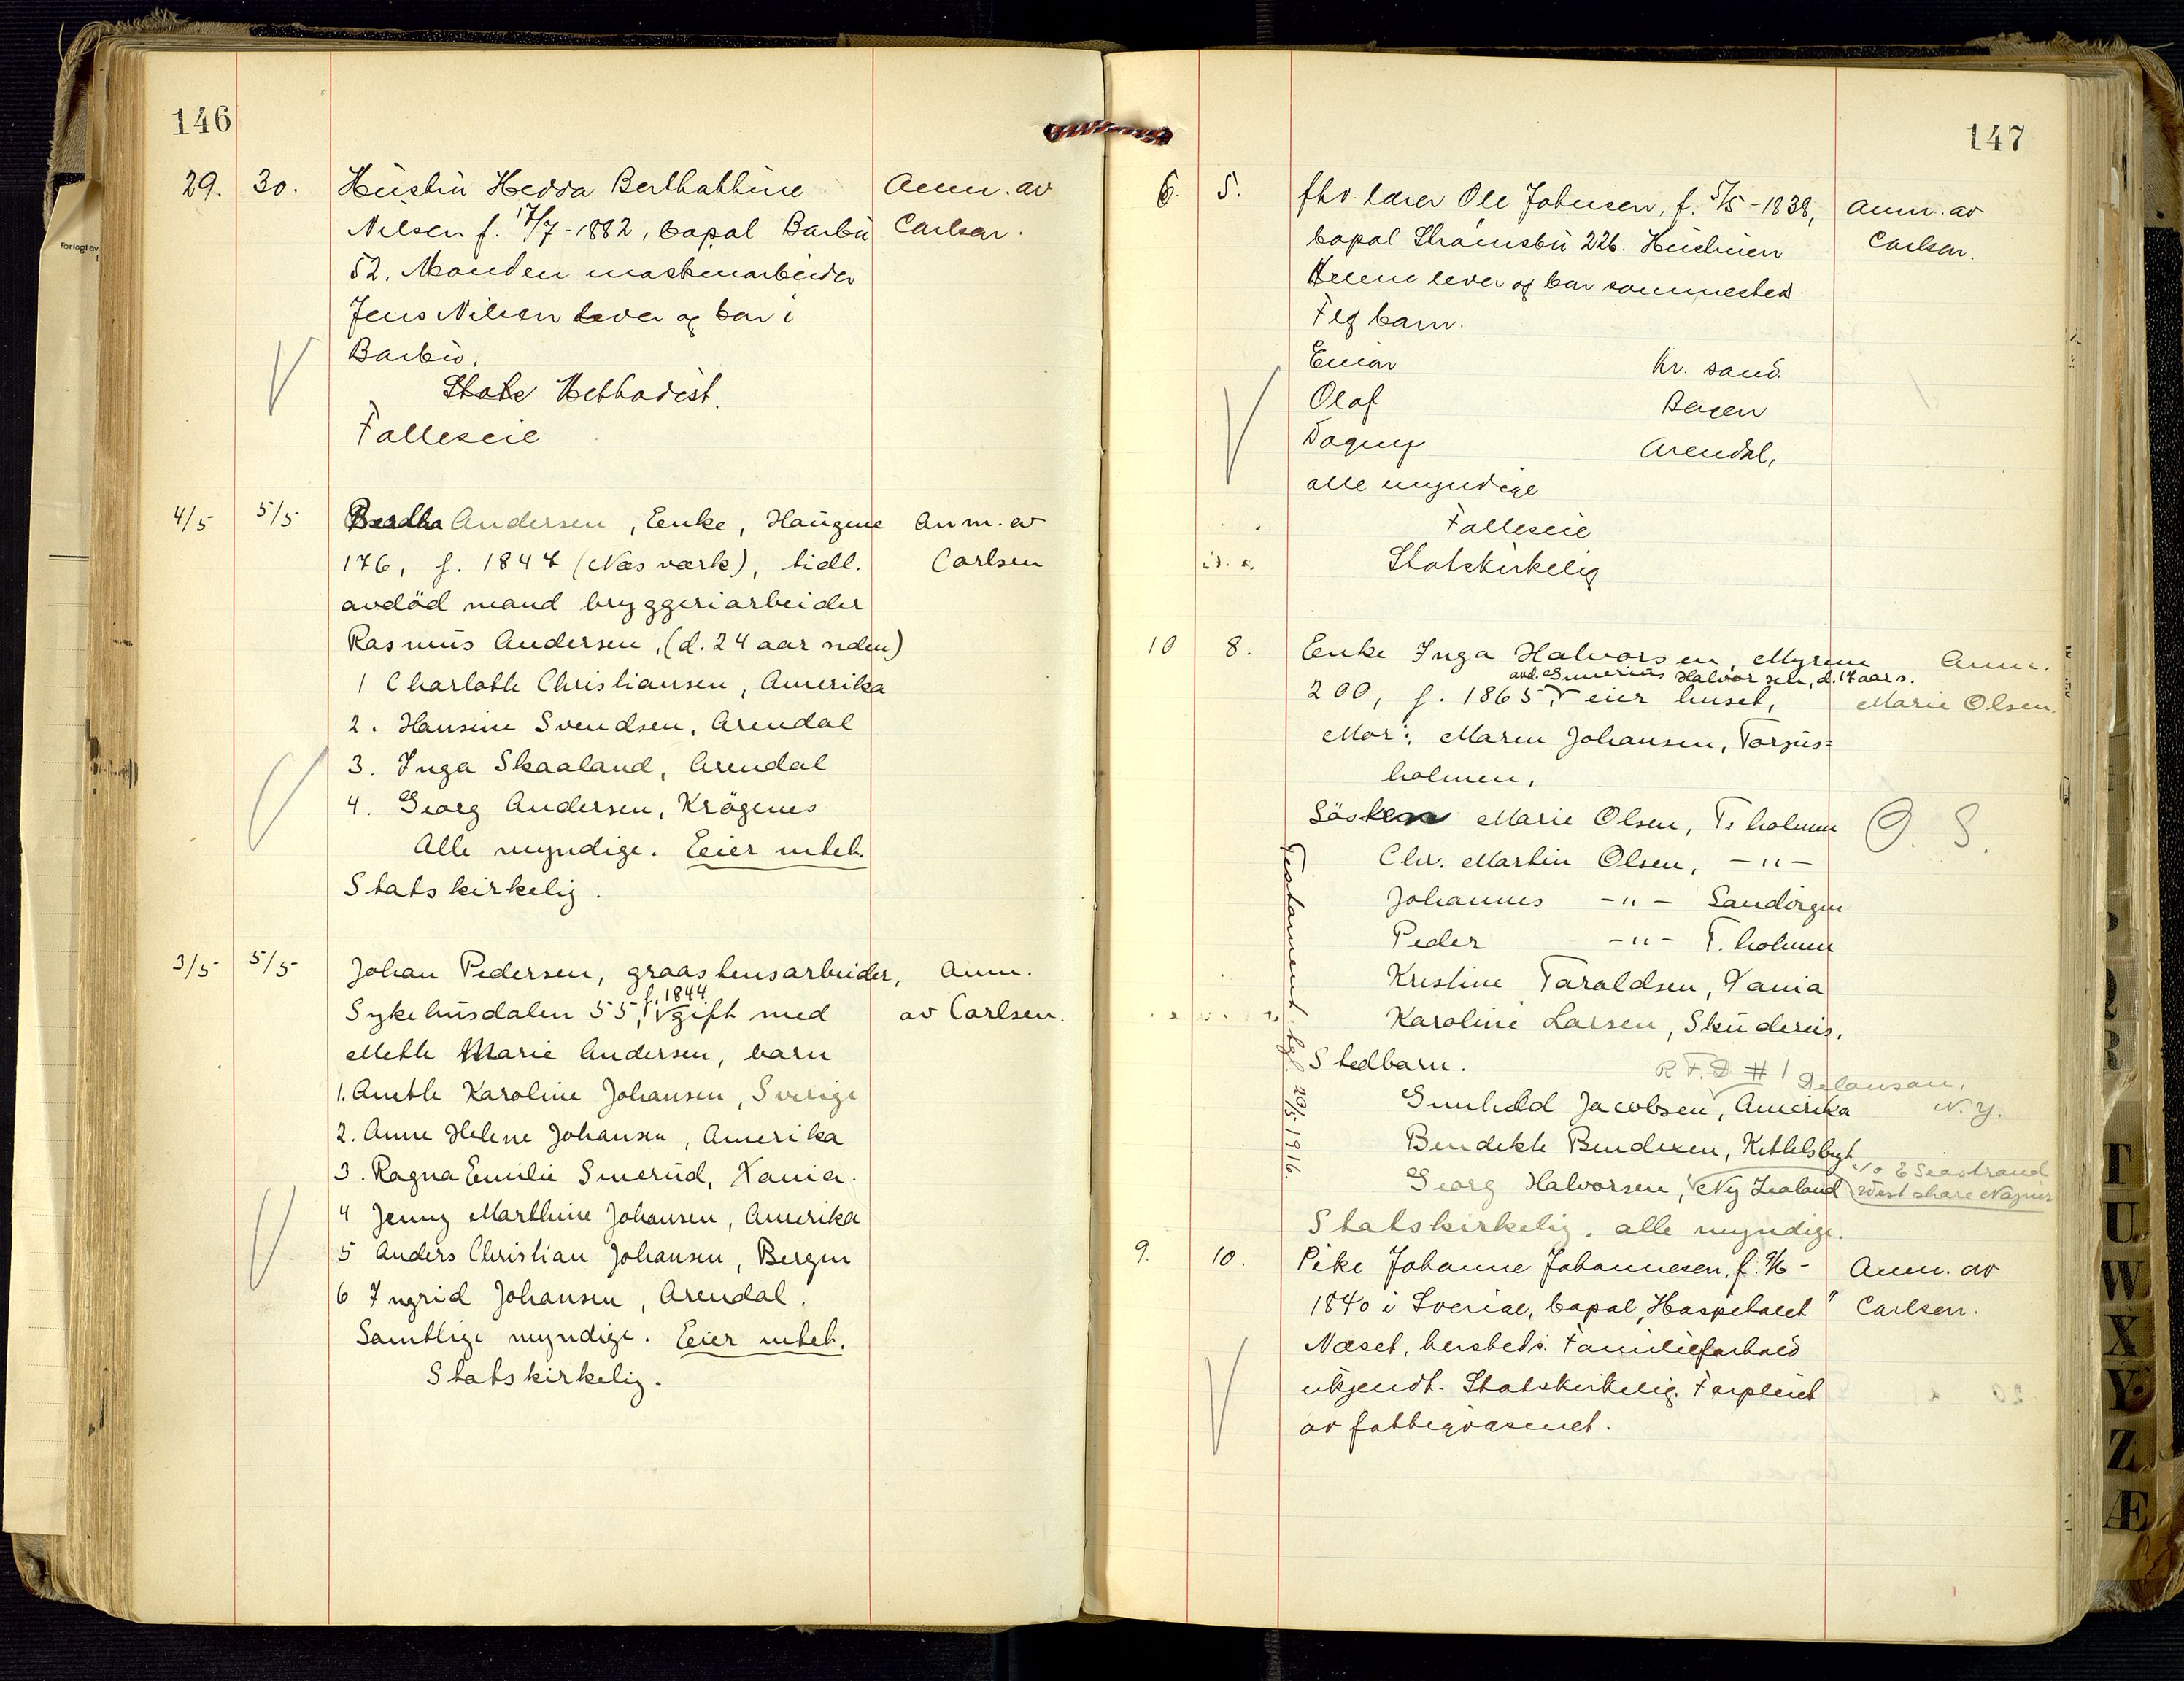 146
29. 30. Hustru Hedda Berthathine Anm. av
Nilsen f. 17/7-1882, bopæl Barbu Carlsen.
52. Manden maskinarbeider
Jens Nilsen lever og bor i
Barbu.
State Methodist.
Fælleseie
4/5 5/5 Berdha Andersen, Enke, Haugene Anm. av
176, f. 1847 (Næs værk), tidl. Carlsen
avdöd mand bryggeriarbeider
Rasmus Andersen, (d. 24 aar siden)
1 Charlotte Christiansen, Amerika
2. Hansine Svendsen, Arendal
3. Inga Skaaland, Arendal
4. Georg Andersen, Krögenes
Alle myndige. Eier intet.
Statskirkelig.
3/5 5/5 Johan Pedersen, graastensarbeider, Anm.
f. 1844
Sykehusdalen 55, gift med av Carlsen.
Mette Marie Andersen, barn
1. Anette Karoline Johansen, Sverige
2. Anne Helene Johansen, Amerika
3. Ragna Emilie Smerud, Xania.
4 Jenny Marthine Johansen, Amerika
5 Anders Christian Johansen, Bergen
6 Ingrid Johansen, Arendal.
Samtlige myndige. Eier intet.
Statskirkelig.
147
6. 5. fhv. lærer Ole Johnsen, f. 5/5-1838, Anm. av
bopæl Strømsbu 226. Hustruen Carlsen.
Helene lever og bor sammesteds.
Flg barn.
Einar Kr. sand.
Olaf Bergen
Dagny Arendal,
alle myndige
Fælleseie
Statskirkelig
10 8. Enke Inga Halvorsen, Myrene Anm.
avd. Gunerius Halvorsen, d. 17 aar s.
200, f. 1865, eier huset, Marie Olsen.
Mor: Maren Johansen, Torjus=
holmen,
Søsken Marie Olsen, T. holmen O. S.
Chr. Martin Olsen, -"-
Johannes -"- Sandvigen
Peder -"- T. holmen
Kristine Taraldsen, Xania
Karoline Larsen, Skudenes,
Testament tgl. 20/5 1916.
Stedbarn.
R.F.D #1 Delanson,
Gunhild Jacobsen, Amerika N.Y.
Bendikte Bendixen, Kittelsbugt
c/o E Seastrand
Georg Halvorsen, Ny Zealand West shore Napier
Statskirkelig. alle myndige.
9. 10. Pike Johanne Johannesen, f. 9/6- Anm. av
1840 i Sverige, bopæl "Hospitalet" Carlsen.
Næset, hersteds. Familieforhold
ukjendt. Statskirkelig. Forpleiet
av fattigvæsenet.
Forlagt av
P
Q
R
T
U
W
X
Y
Z
Æ